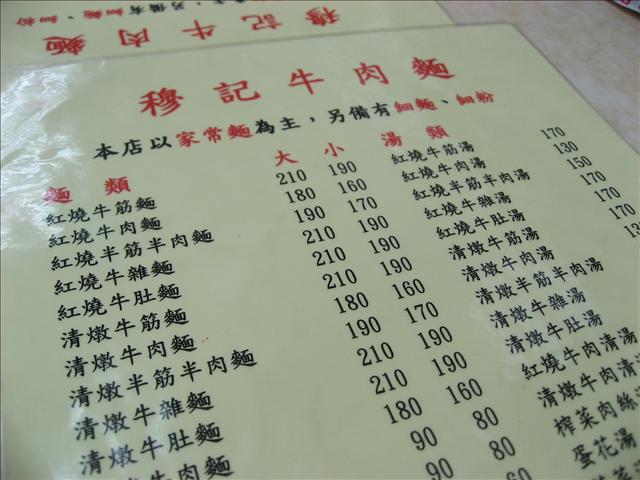 穆記牛肉麵
細粉、細麵有備另，主為
穆記牛肉麵
本店以家常麵為主，另備有細麵、細粉
麵類 大 小
紅燒牛筋麵 210 190
紅燒牛肉麵 180 160
紅燒半筋半肉麵 190 170
紅燒牛雜麵 210 190
紅燒牛肚麵 210 190
清燉牛筋麵 210 190
清燉牛肉麵 180 160
清燉半筋半肉麵 190 170
清燉牛雜麵 210 190
清燉牛肚麵 210 190
牛肉麵 180 160
90 80
90 80
60
湯類
紅燒牛筋湯 170
紅燒牛肉湯 130
紅燒半筋半肉湯 150
紅燒牛雜湯 170
紅燒牛肚湯 170
清燉牛筋湯 170
清燉牛肉湯
清燉半筋半肉湯
清燉牛雜湯
清燉牛肚湯
紅燒牛肉清湯
清燉牛肉清
榨菜肉絲
蛋花湯